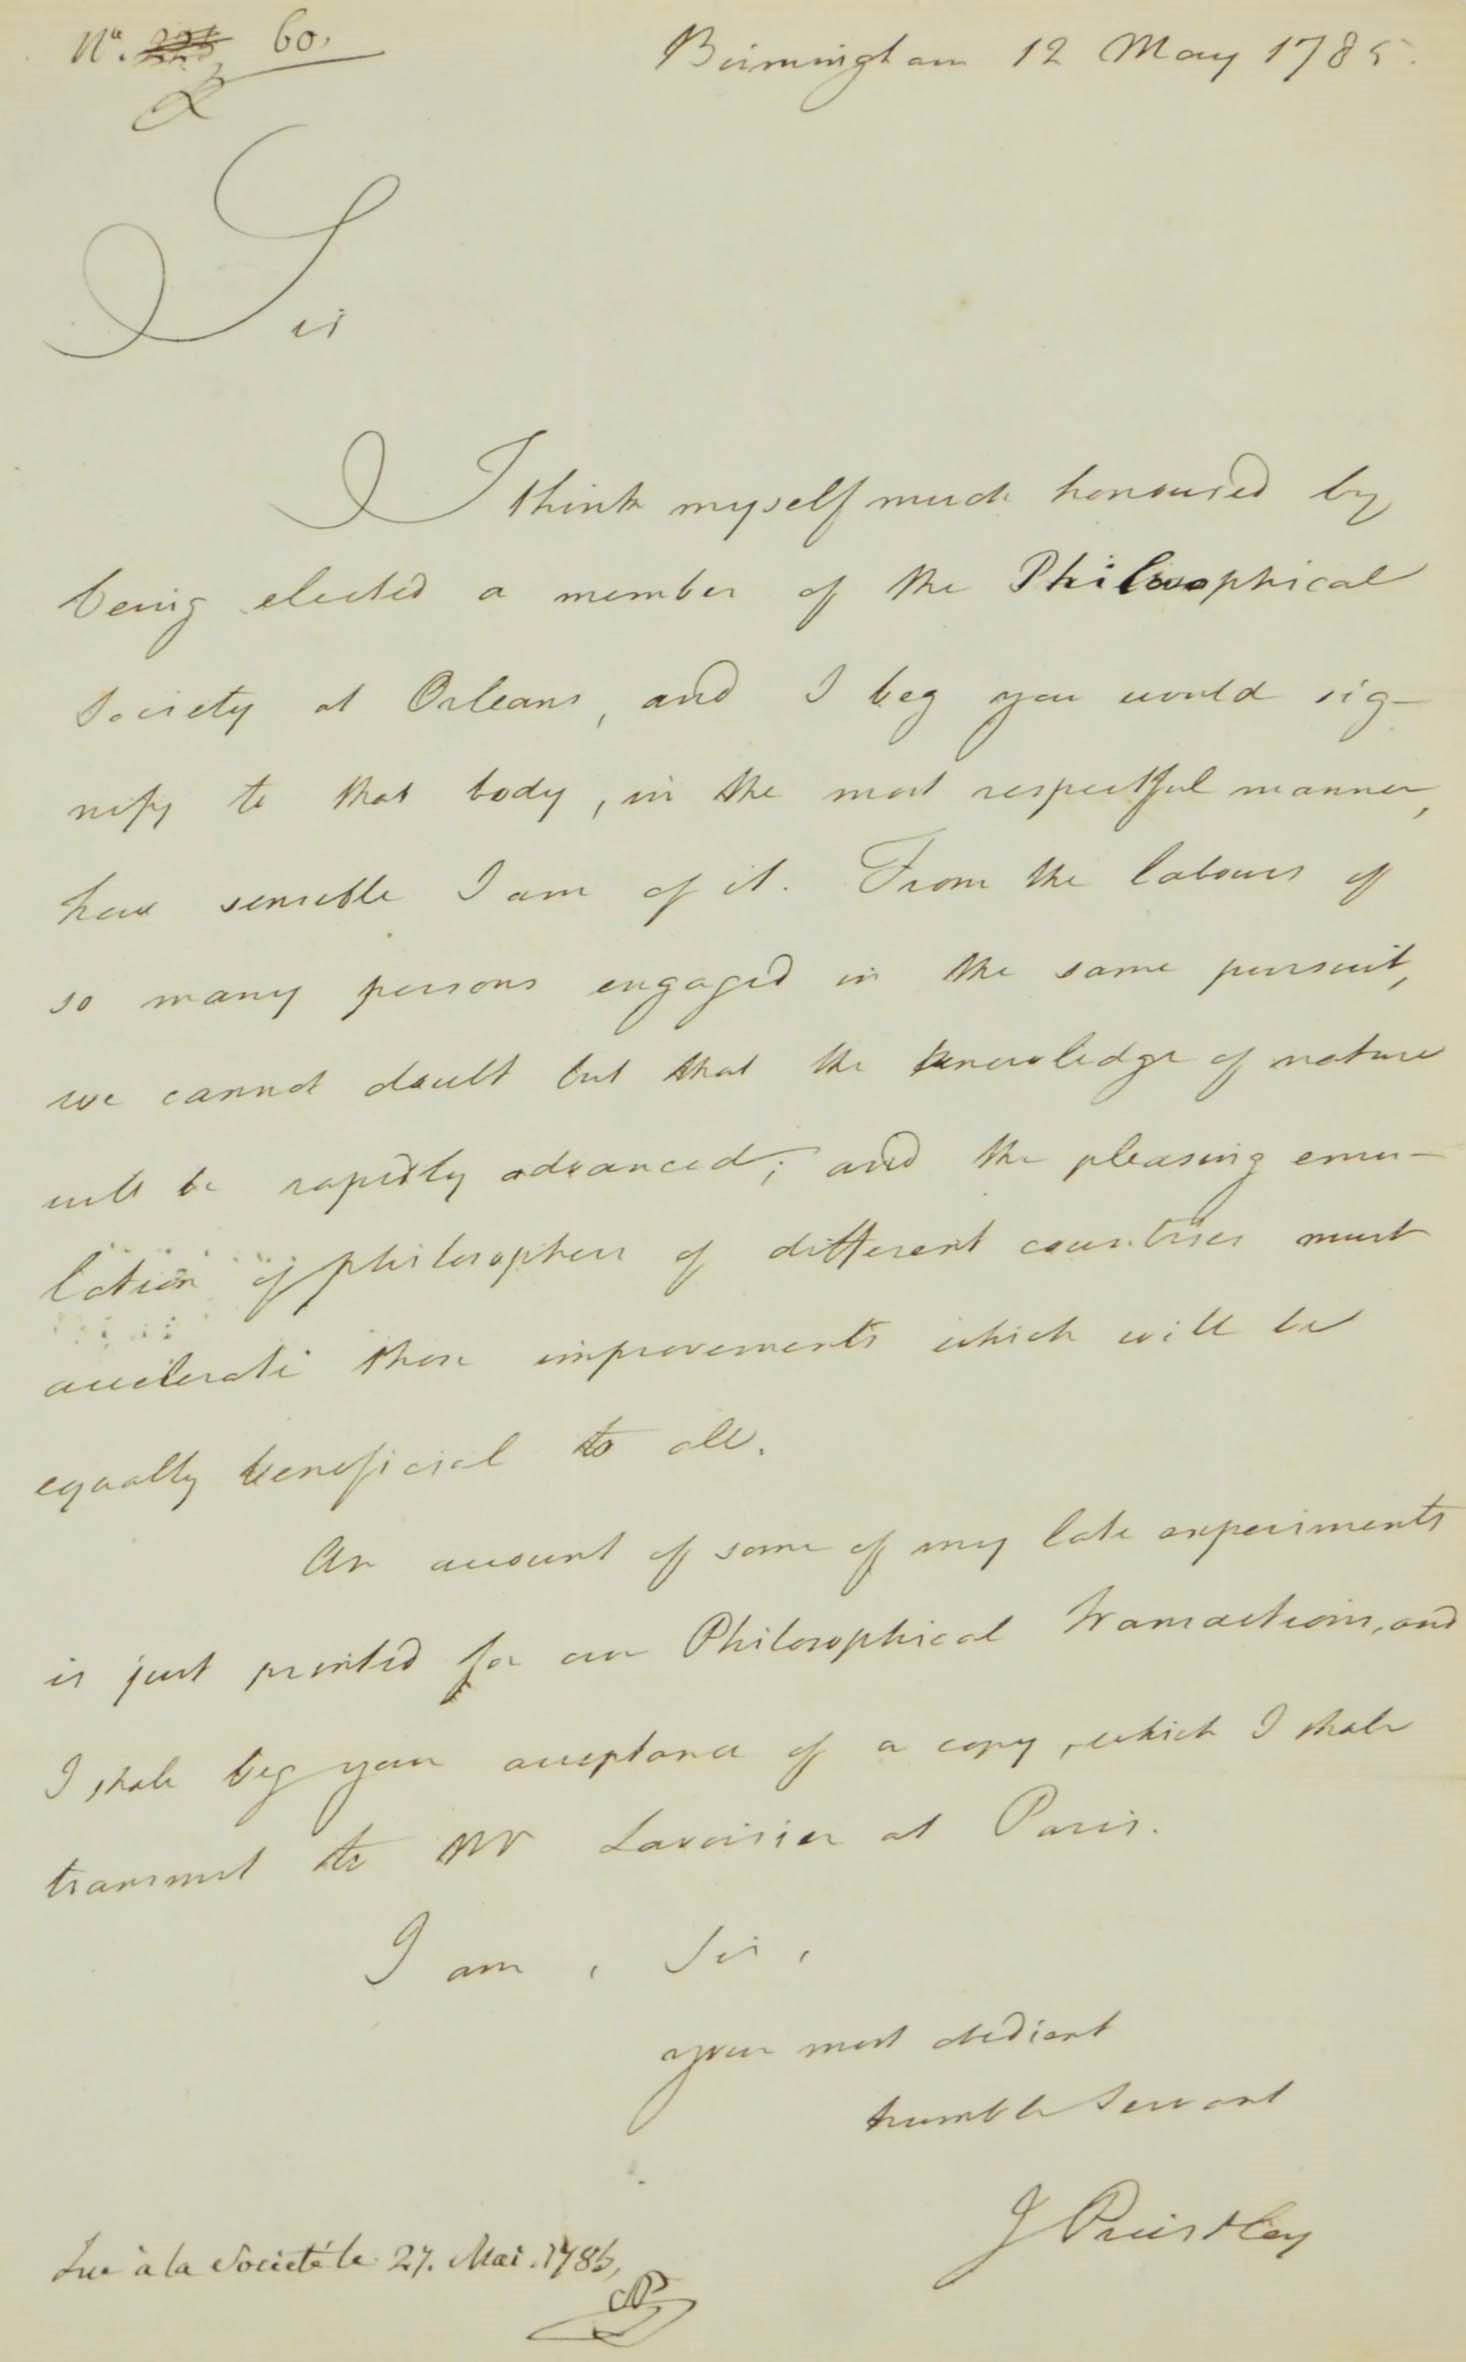 N°. 60.
Birmingham 12 May 1785.
Sir
I think myself much honoured by
being elected a member of the Philosophical
Society at Orleans, and I beg you would sig-
nify to that body, in the most respectful manner,
how sensible I am of it. From the labours of
so many persons engaged in the same pursuit,
we cannot doubt but that the knowledge of nature
will be rapidly advanced; and the pleasing emu-
lation of philosophers of different countries must
accelerate those improvements which will be
equally beneficial to all.
An account of some of my late experiments
is just printed for our Philosophical Transactions, and
I shall beg your acceptance of a copy, which I shall
transmit to Mr Lavoisier at Paris.
I am, Sir,
your most obedient
humble Servant
J Priestley
Lue à la Société le 27. Mai. 1785,